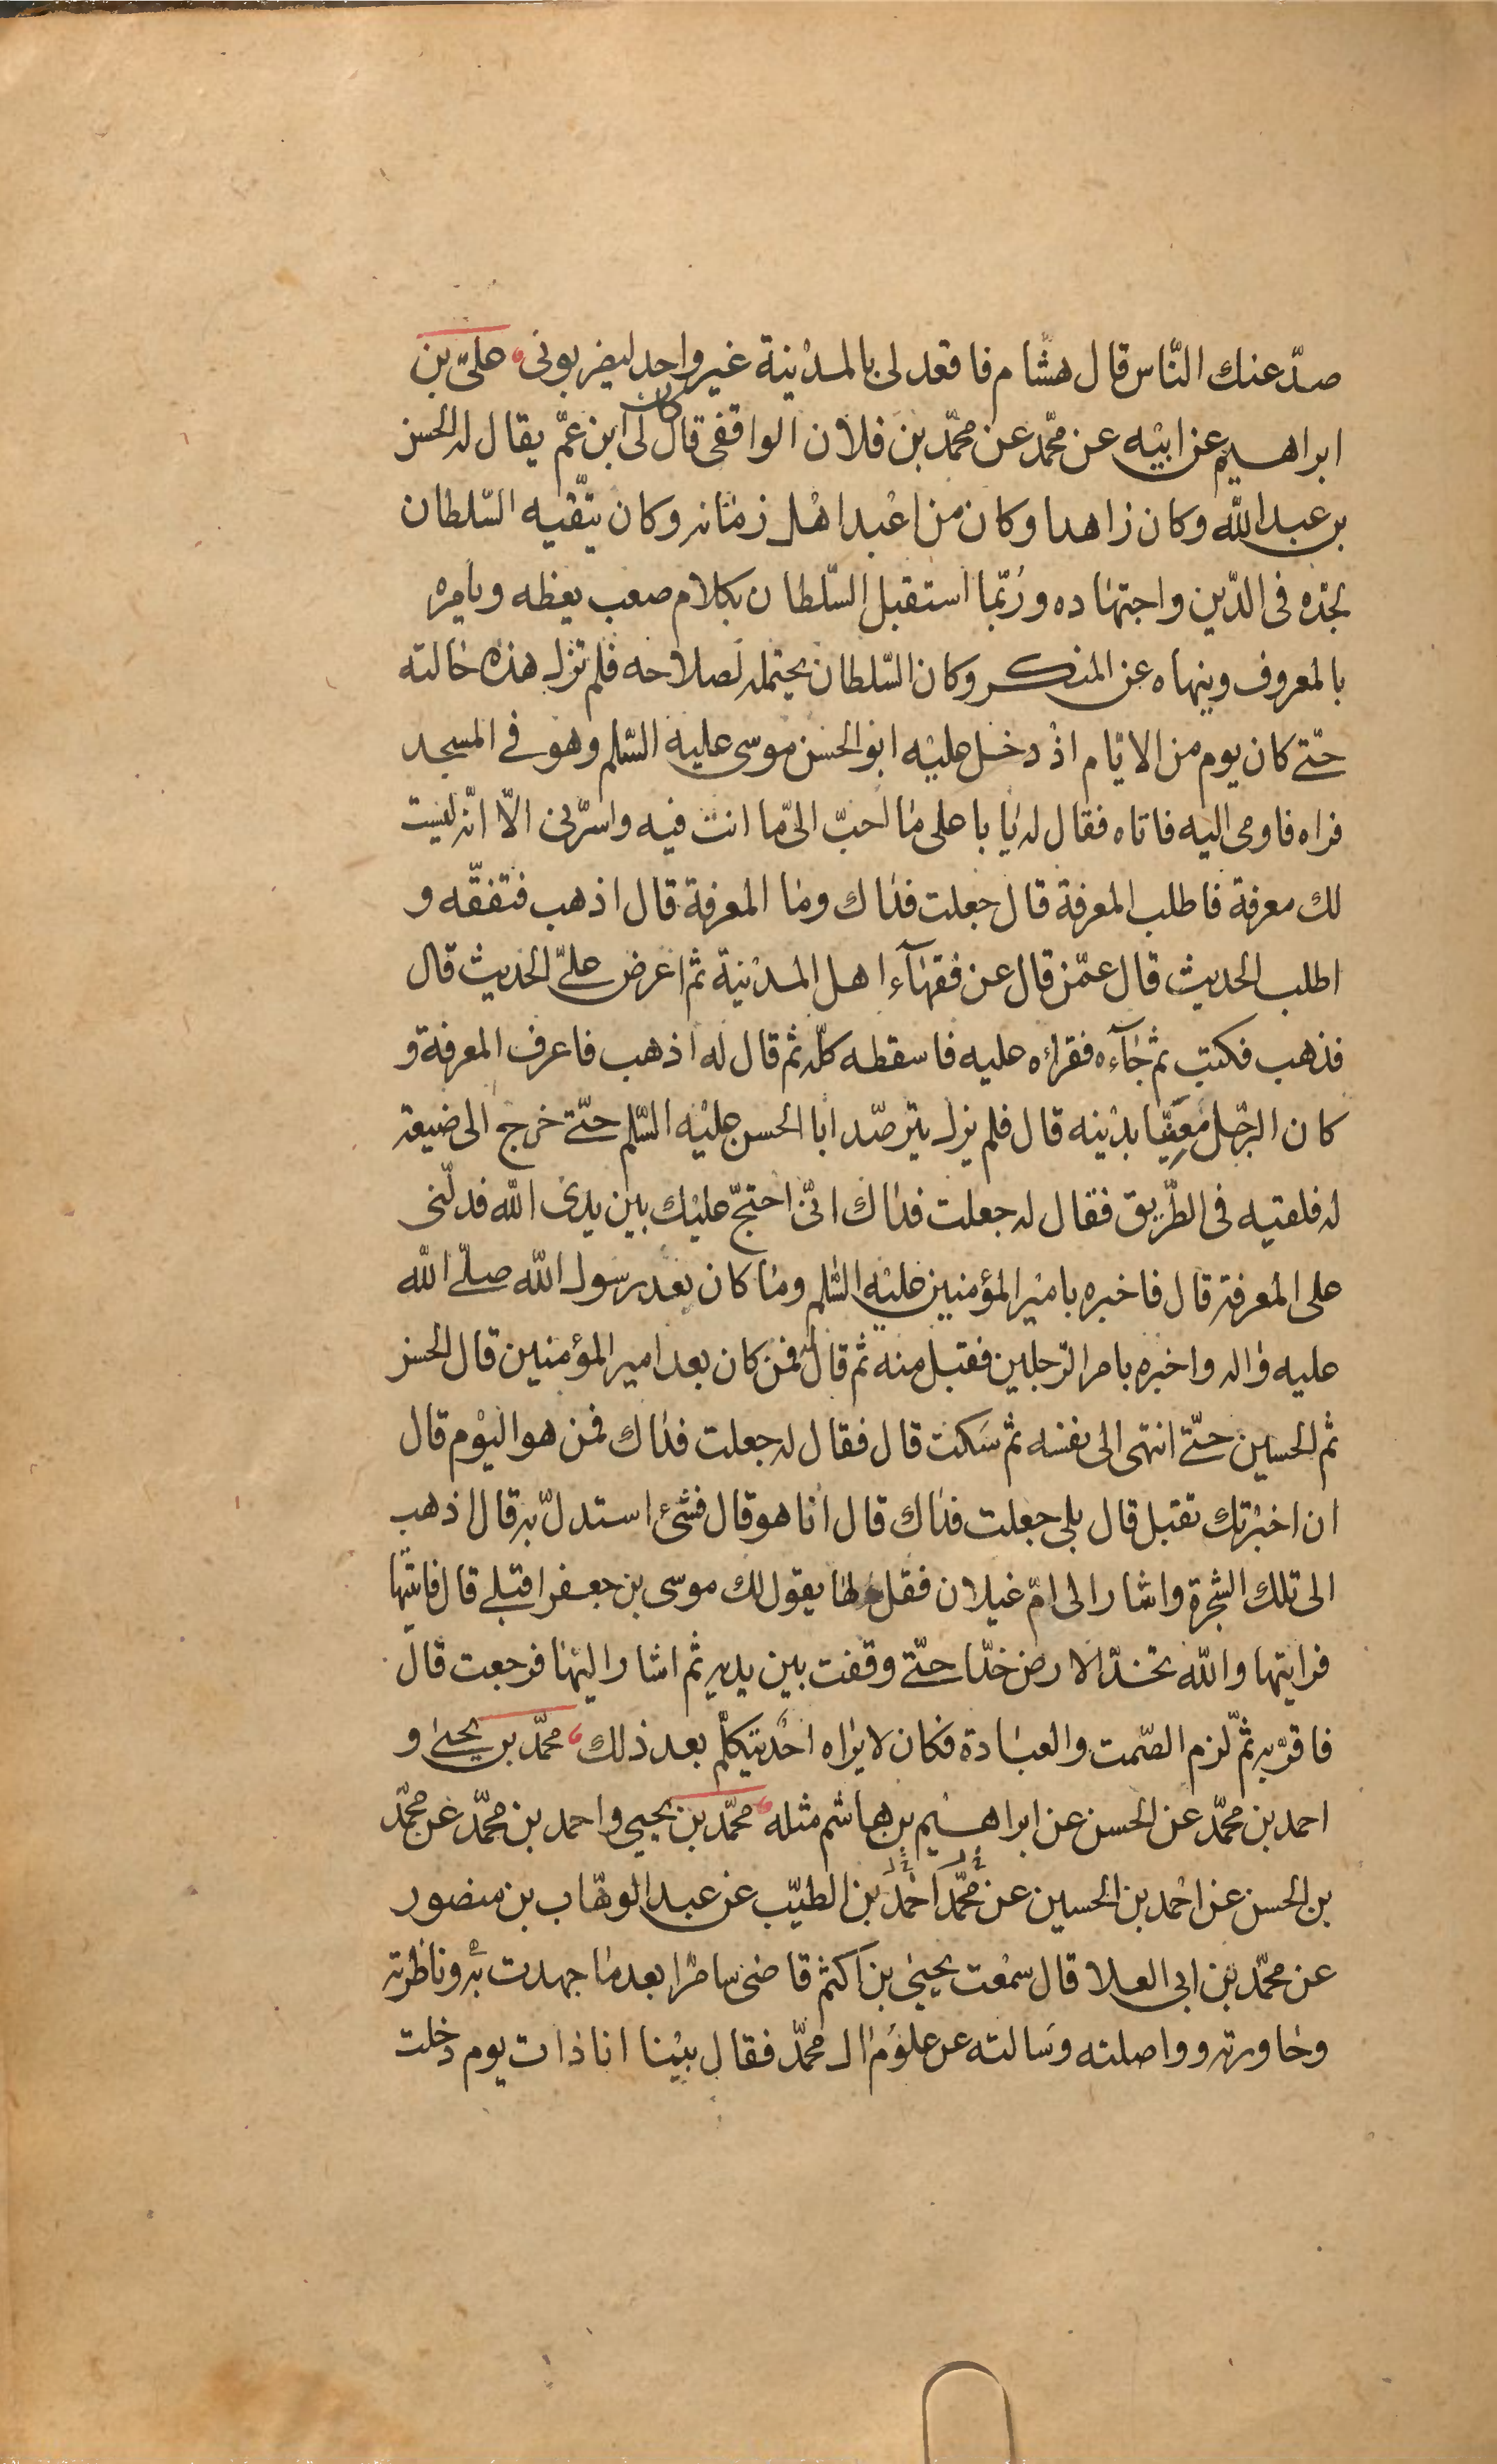 صدّ عنك النّاس قال هشام فاقعد لى بالمدينة غير واحد ليضربونى علىّ بن
ابراهيم عن ابيه عن محمّد عن محمّد بن فلان الواقفى قال كان لى ابن عمّ يقال له الحسن
بن عبد الله وكان زاهدا وكان من اعبد اهل زمانه وكان يتّقيه السّلطان
لجدّه فى الدّين واجتهاده وربّما استقبل السّلطان بكلام صعب يعظه ويامره
بالمعروف وينهاه عن المنكر وكان السّلطان يحتمله لصلاحه فلم تزل هذه حالته
حتّى كان يوم من الايّام اذ دخل عليه ابو الحسن موسى عليه السّلم وهو فى المسجد
فراه فاومى اليه فاتاه فقال له يا با على ما احبّ الىّ ما انت فيه واسرّنى الّا انّه ليست
لك معرفة فاطلب المعرفة قال جعلت فداك وما المعرفة قال اذهب فتفقّه و
اطلب الحديث قال عمّن قال عن فقهآء اهل المدينة ثم اعرض علىّ الحديث قال
فذهب فكتب ثم جآءه فقراه عليه فاسقطه كلّه ثم قال له اذهب فاعرف المعرفة و
كان الرّجل معنيّا بدينه قال فلم يزل يترصّد ابا الحسن عليه السّلم حتّى خرج الى ضيعة
له فلقيه فى الطّريق فقال له جعلت فداك انّى احتجّ عليك بين يدى الله فدلّنى
على المعرفة قال فاخبره بامير المؤمنين عليه السّلم وما كان بعد رسول الله صلّى الله
عليه واله واخبره بامر الرّجلين فقبل منه ثم قال له فمن كان بعد امير المؤمنين قال الحسن
ثم الحسين حتّى انتهى الى نفسه ثم سكت قال فقال له جعلت فداك فمن هو اليوم قال
ان اخبرتك تقبل قال بلى جعلت فداك قال انا هو قال فشئ استدلّ به قال اذهب
الى تلك الشّجرة واشار الى امّ غيلان فقل لها يقول لك موسى بن جعفر اقبلى قال فاتيتها
فرايتها والله تخدّ الارض خدّا حتّى وقفت بين يديه ثم اشار اليها فرجعت قال
فاقرّ به ثمّ لزم الصّمت والعبادة فكان لا يراه احد يتكلّم بعد ذلك محمّد بن يحيى و
احمد بن محمّد عن الحسن عن ابراهيم بن هاشم مثله محمّد بن يحيى واحمد بن محمّد عن محمّد
بن الحسن عن احمد بن الحسين عن محمّد احمد بن الطيّب عن عبد الوهّاب بن منصور
عن محمّد بن ابى العلا قال سمعت يحيى بن اكثم قاضى سامرّا بعد ما جهدت به وناظرته
وحاورته وواصلته وسالته عن علوم ال محمّد فقال بينا انا ذات يوم دخلت